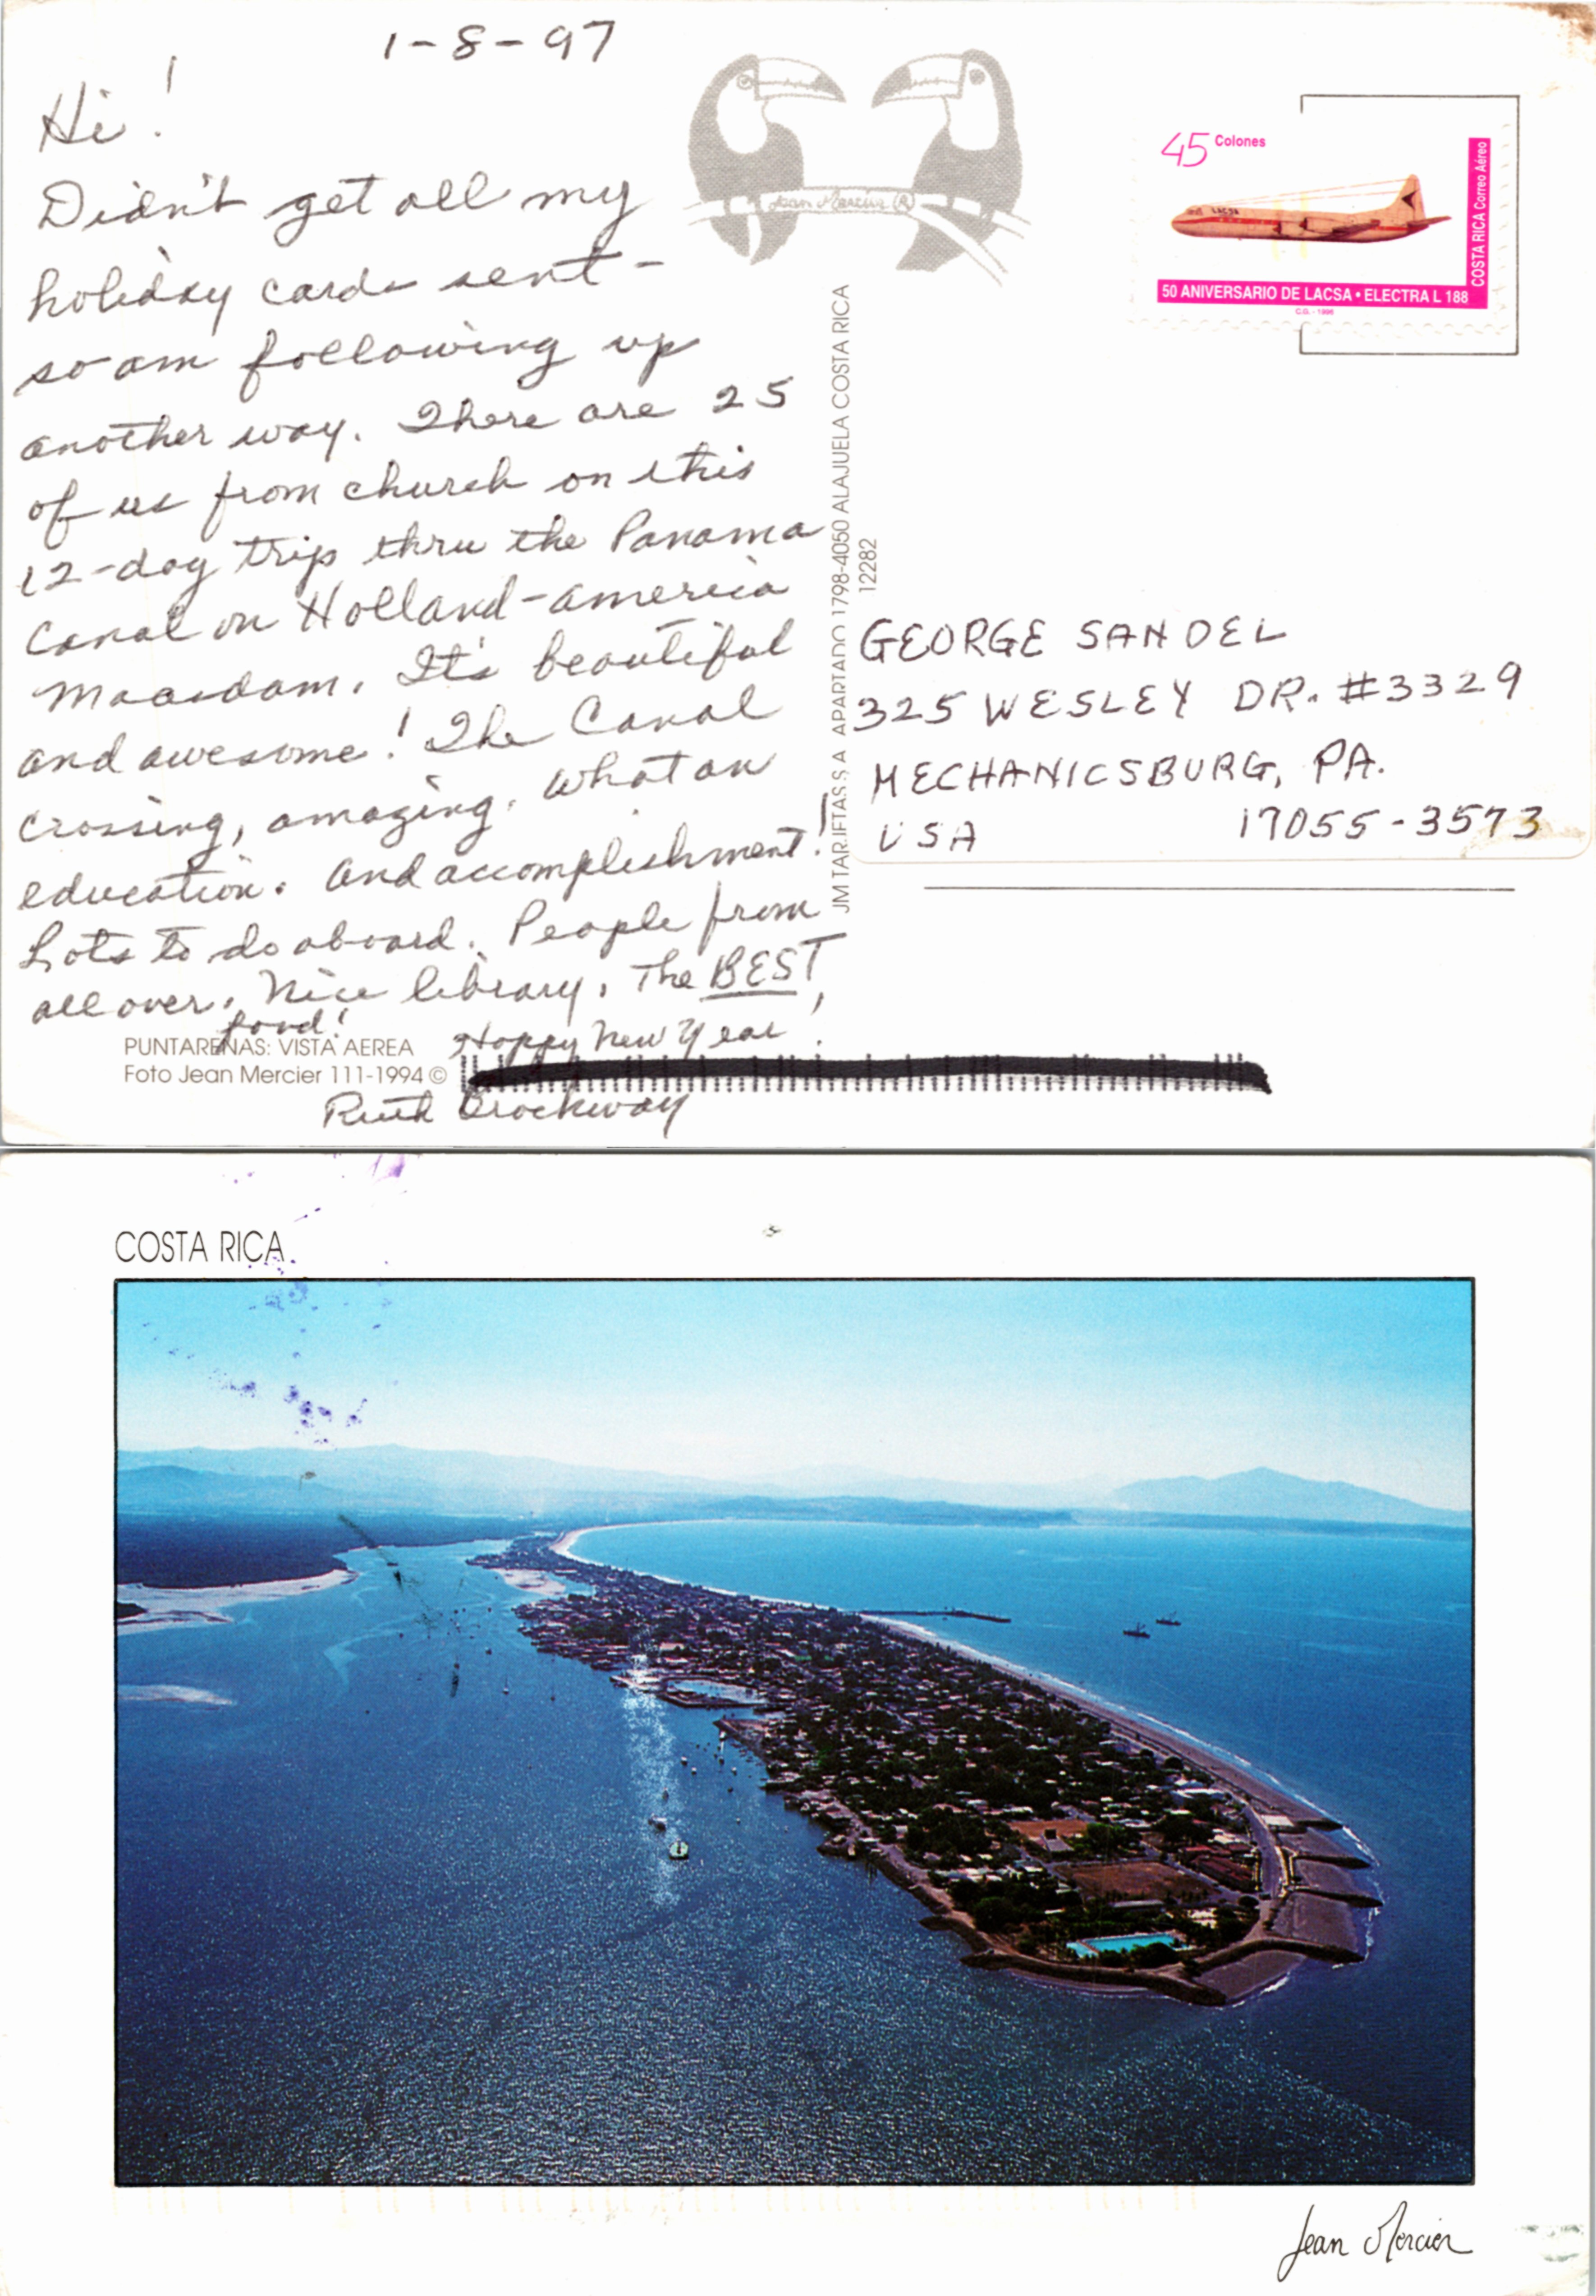 1-8-97
Hi!
Didn't get all my
holiday cards sent -
so am following up
another way. There are 25
of us from church on this
12-day trip thru the Panama
Canal on Holland-America
Maasdam. It's beautiful
and awesome! The Canal
crossing, amazing. What an
education. And accomplishment!
Lots to do aboard. People from
all over. Nice library. The BEST
food!
Happy New Year!
Ruth Brockway
PUNTARENAS: VISTA AEREA
Foto Jean Mercier 111-1994 ©
Jean Mercier ®
JM TARJETAS S A APARTADO 1798-4050 ALAJUELA COSTA RICA
12282
45 Colones
LACSA
COSTA RICA Correo Aéreo
50 ANIVERSARIO DE LACSA • ELECTRA L 188
C.G. - 1996
GEORGE SANDEL
325 WESLEY DR. #3329
MECHANICSBURG, PA.
USA 17055-3573
COSTA RICA
Jean Mercier